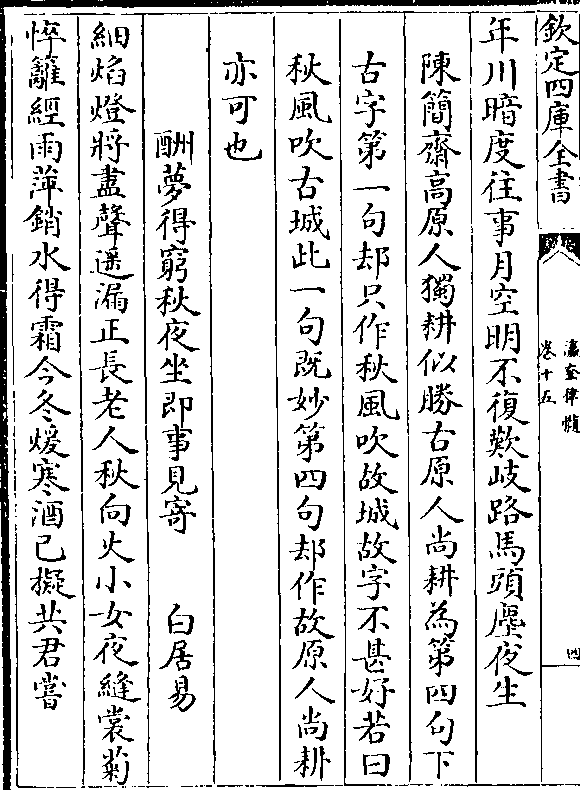 欽定四庫全書
瀛奎律髓
卷十五
四
年川暗度往事月空明不復歎岐路馬頭塵夜生
陳簡齋高原人獨耕似勝古原人尚耕為第四句下
古字第一句却只作秋風吹故城故字不甚好若曰
秋風吹古城此一句既妙第四句却作故原人尚耕
亦可也
酬夢得窮秋夜坐即事見寄 白居易
細焰燈將盡聲遥漏正長老人秋向火小女夜縫裳菊
悴籬經雨萍銷水得霜今冬煖寒酒已擬共君嘗